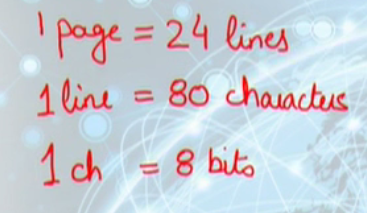 1 page = 24 lines
1 line = 80 characters
1 ch = 8 bits